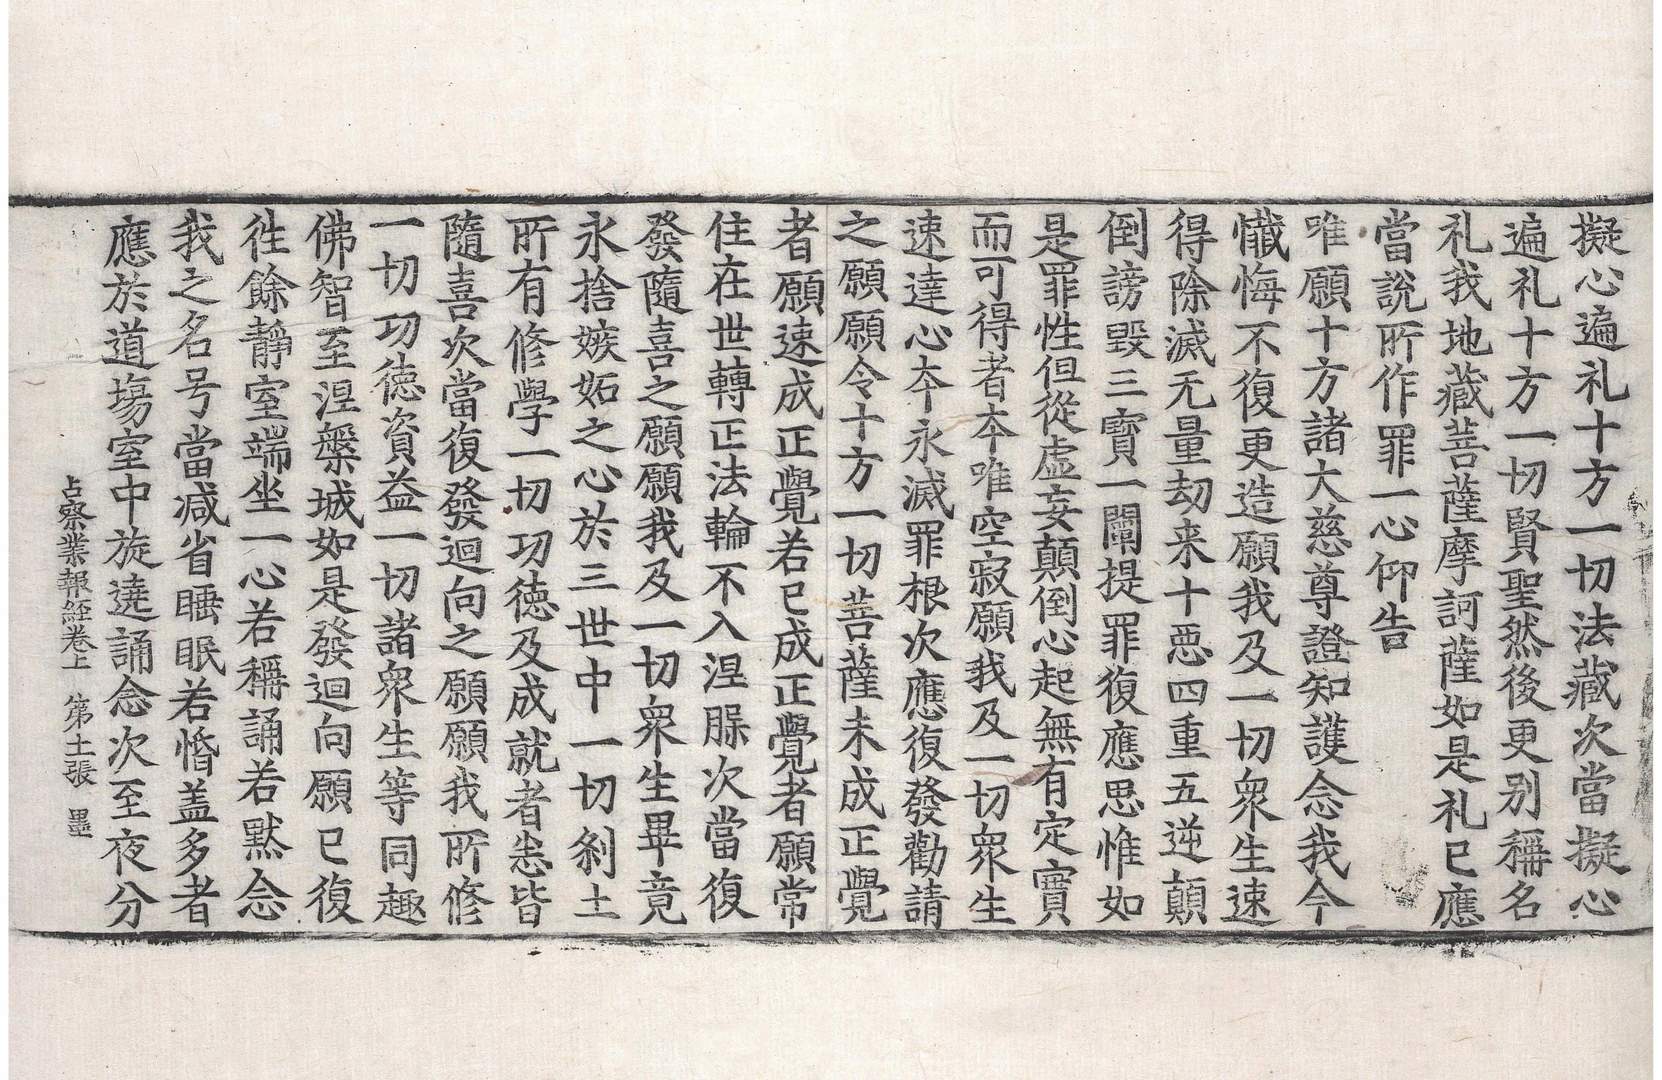 擬心遍礼十方一切法藏次當擬心
遍礼十方一切賢聖然後更别稱名
礼我地藏菩薩摩訶薩如是礼已應
當說所作罪一心仰告
唯願十方諸大慈尊證知護念我今
懺悔不復更造願我及一切衆生速
得除滅无量劫来十惡四重五逆顛
倒謗毀三寶一闡提罪復應思惟如
是罪性但從虛妄顛倒心起無有定實
而可得者夲唯空寂願我及一切衆生
速達心夲永滅罪根次應復發勸請
之願願令十方一切菩薩未成正覺
者願速成正覺若已成正覺者願常
住在世轉正法輪不入涅槃次當復
發隨喜之願願我及一切衆生畢竟
永捨嫉妬之心於三世中一切刹土
所有修學一切功德及成就者悉皆
隨喜次當復發迴向之願願我所修
一切功德資益一切諸衆生等同趣
佛智至涅槃城如是發迴向願已復
徃餘靜室端坐一心若稱誦若默念
我之名号當減省睡眠若惛盖多者
應於道塲室中旋遶誦念次至夜分
占察業報經卷上　第十二張　墨